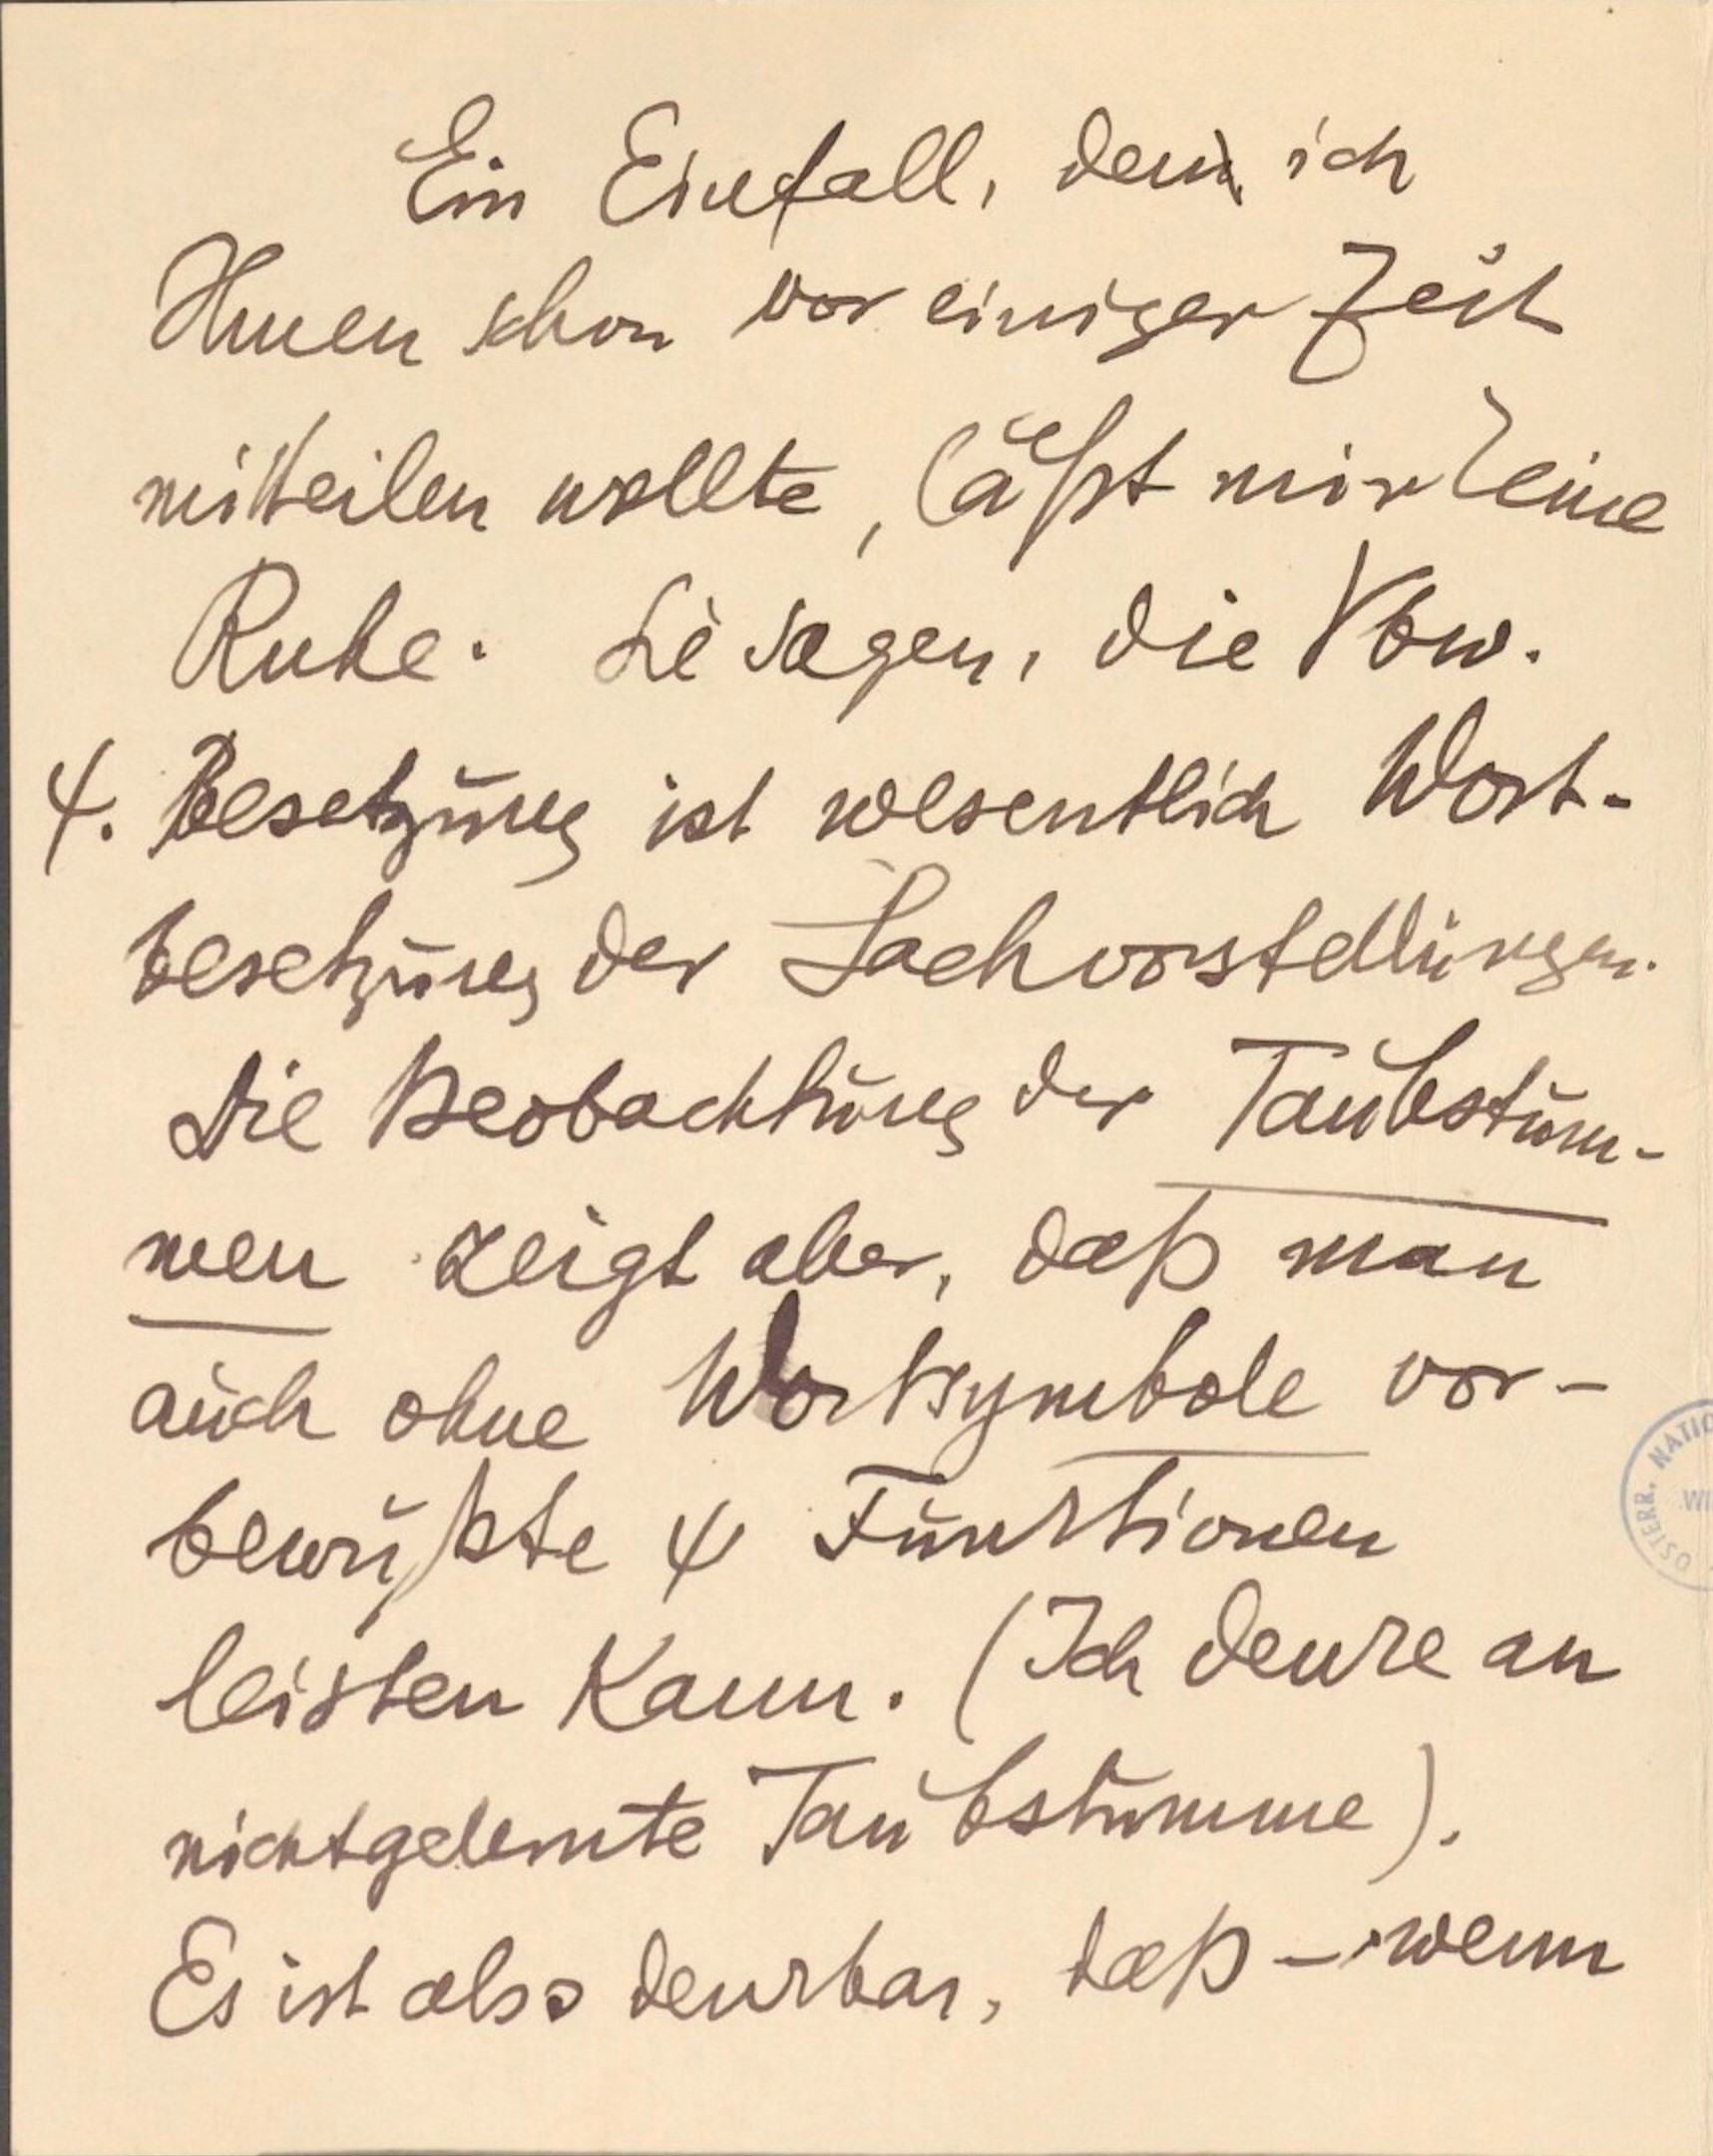 Ein Einfall, den ich
Ihnen schon vor einiger Zeit
mitteilen wollte, läßt mir keine
Ruhe. Sie sagen, die Vbw.
ψ. Besetzung ist wesentlich Wort-
besetzung der Sachvorstellungen.
Die Beobachtung der Taubstum-
men zeigt aber, daß man
auch ohne Wortsymbole vor-
bewußte ψ Funktionen
leisten kann. (Ich denke an
nichtgelernte Taubstumme).
Es ist also denkbar, daß – wenn
ÖSTERR. NATIO
WI